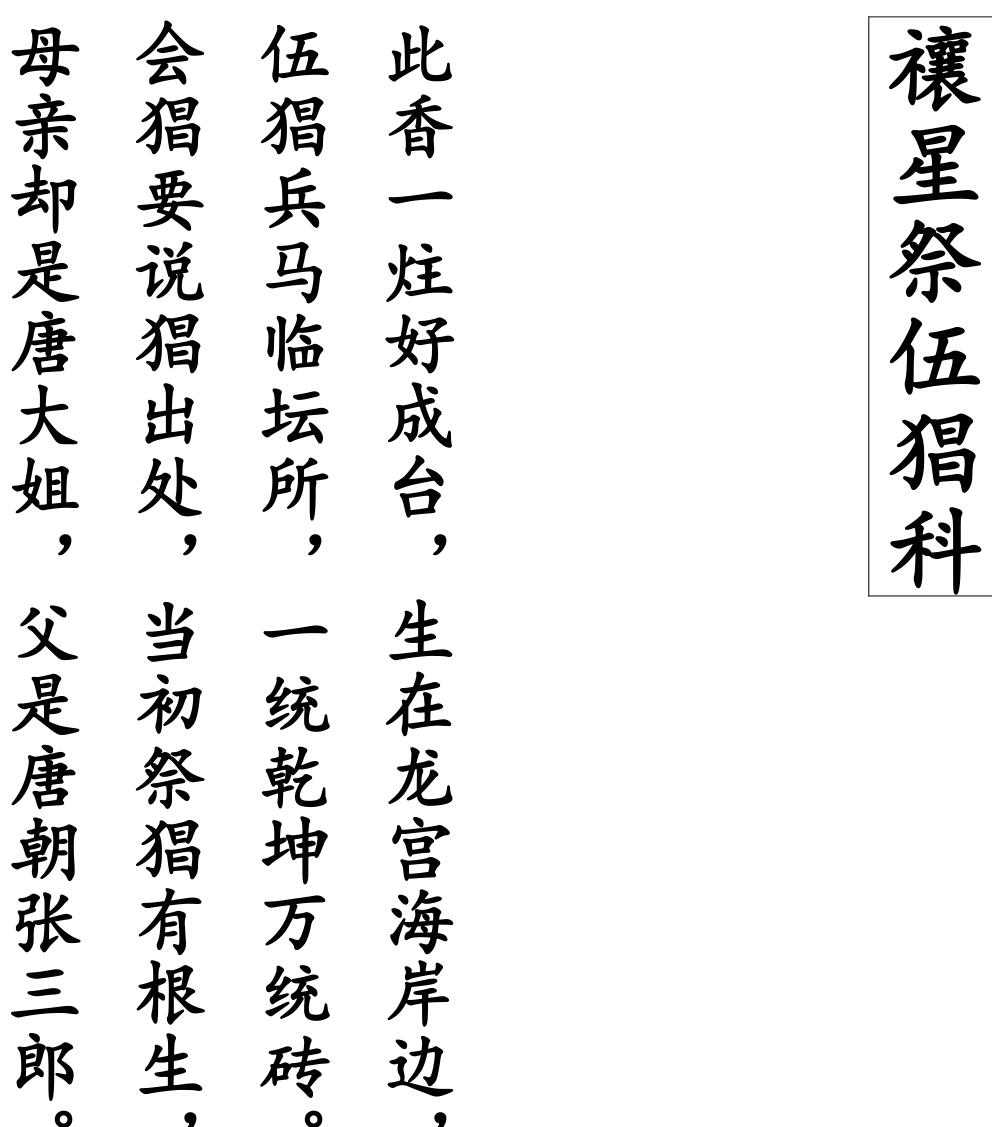 禳星祭伍猖科
此香一炷好成台，生在龙宫海岸边，
伍猖兵马临坛所，一统乾坤万统砖。
会猖要说猖出处，当初祭猖有根生，
母亲却是唐大姐，父是唐朝张三郎。